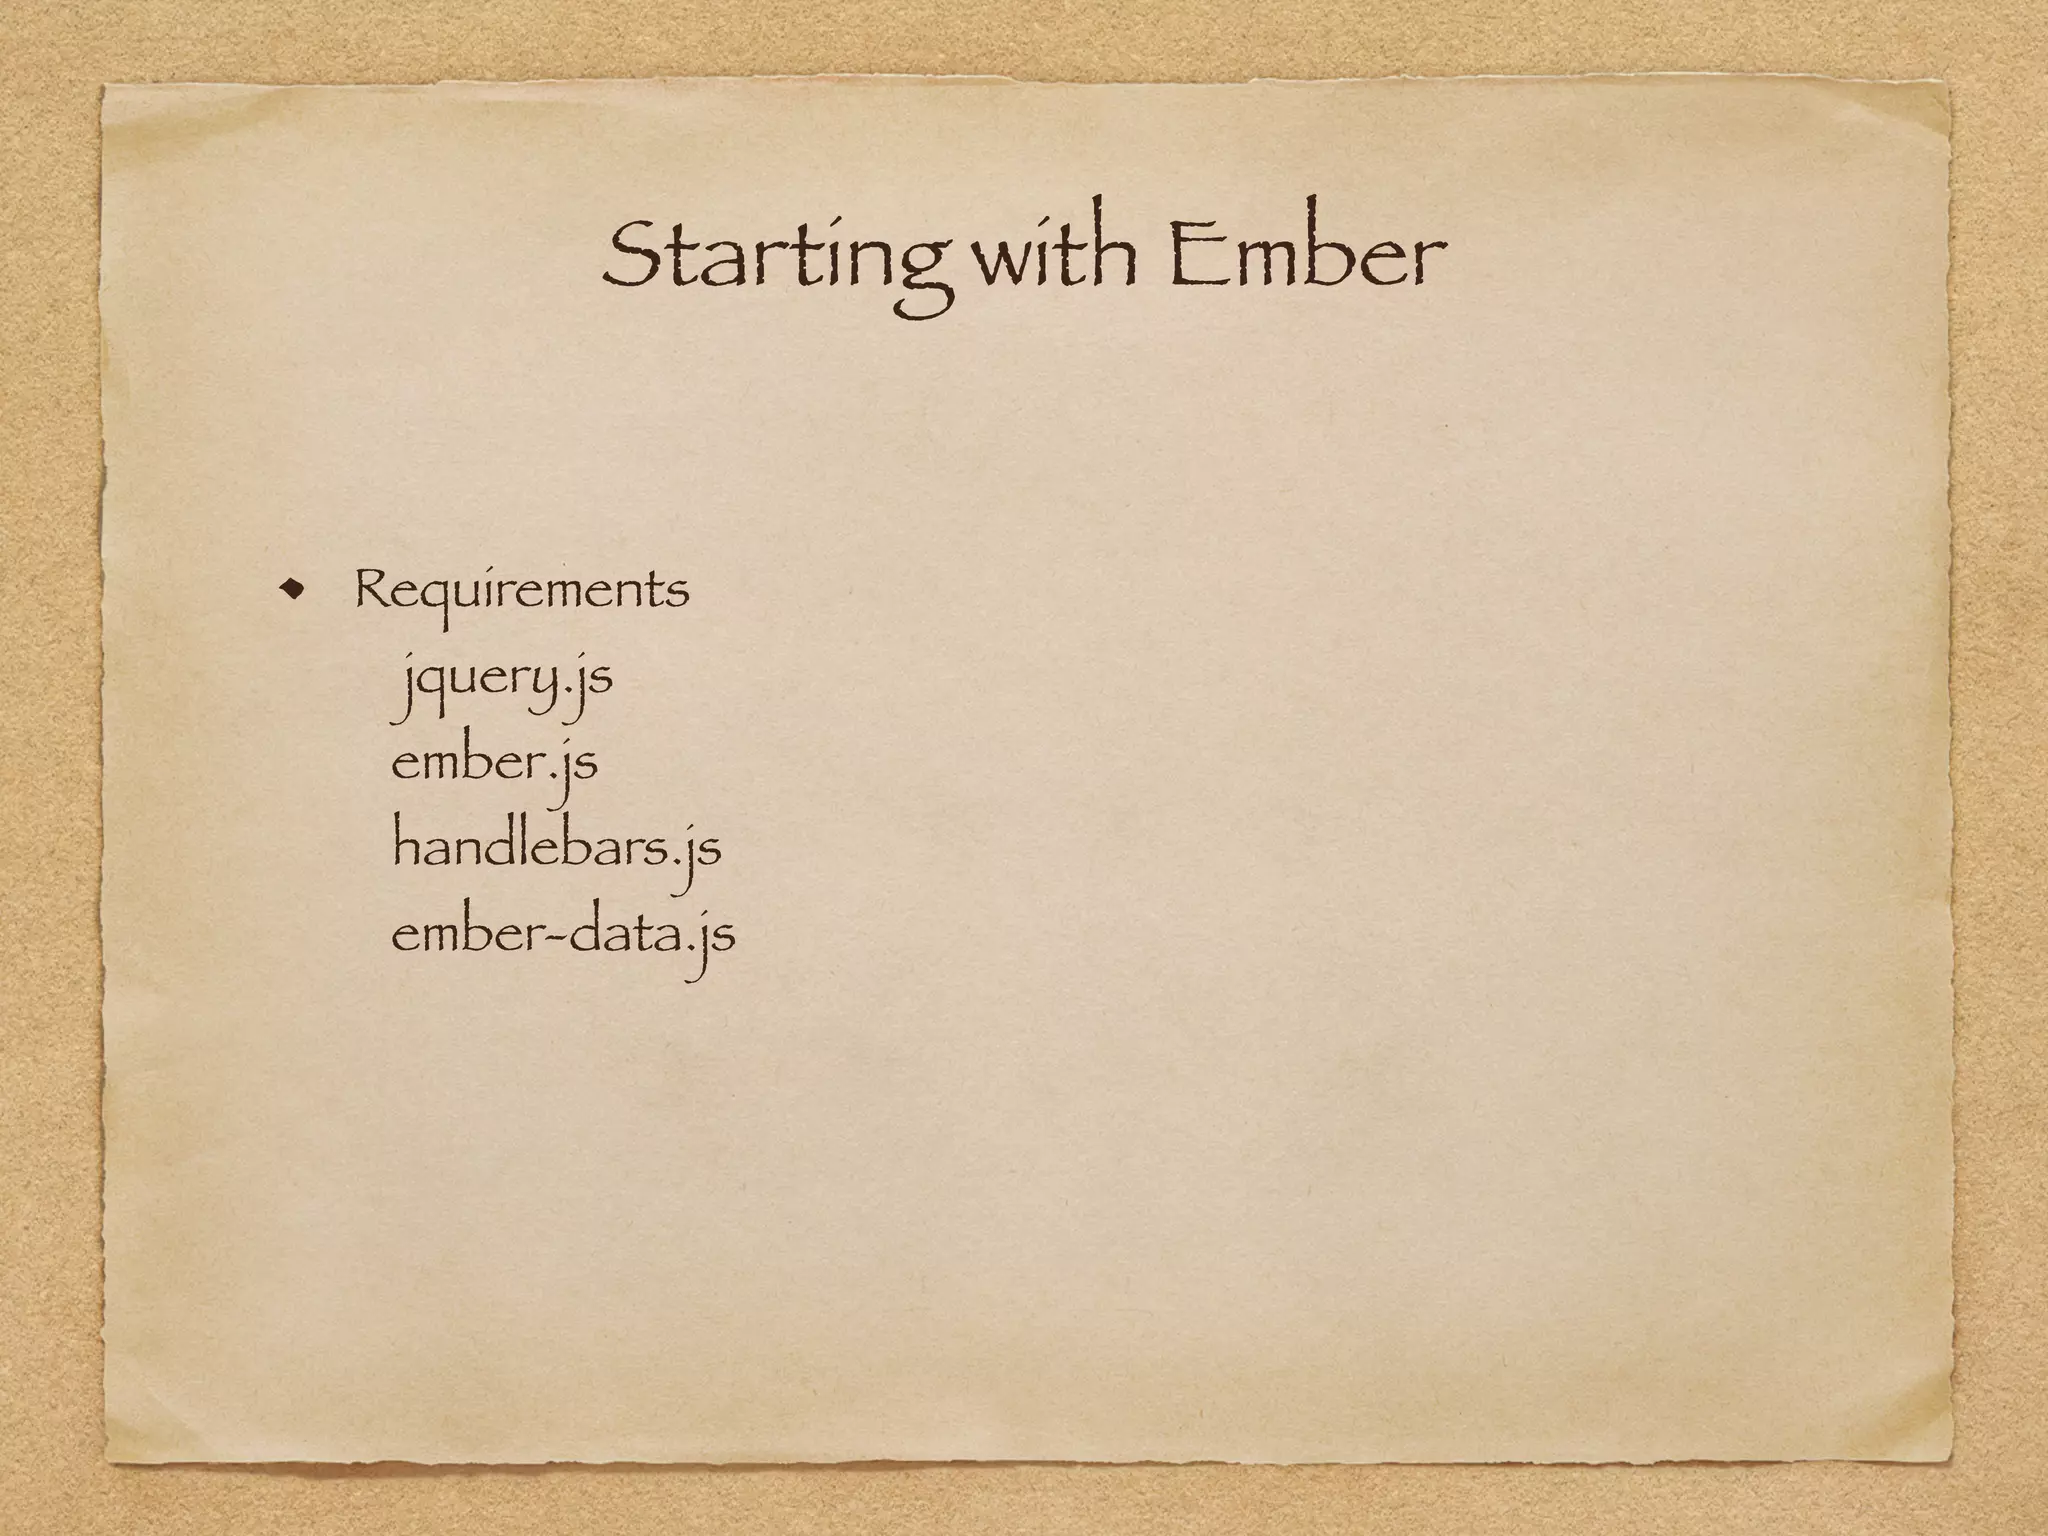 Starting with Ember
• Requirements
jquery.js
ember.js
handlebars.js
ember-data.js